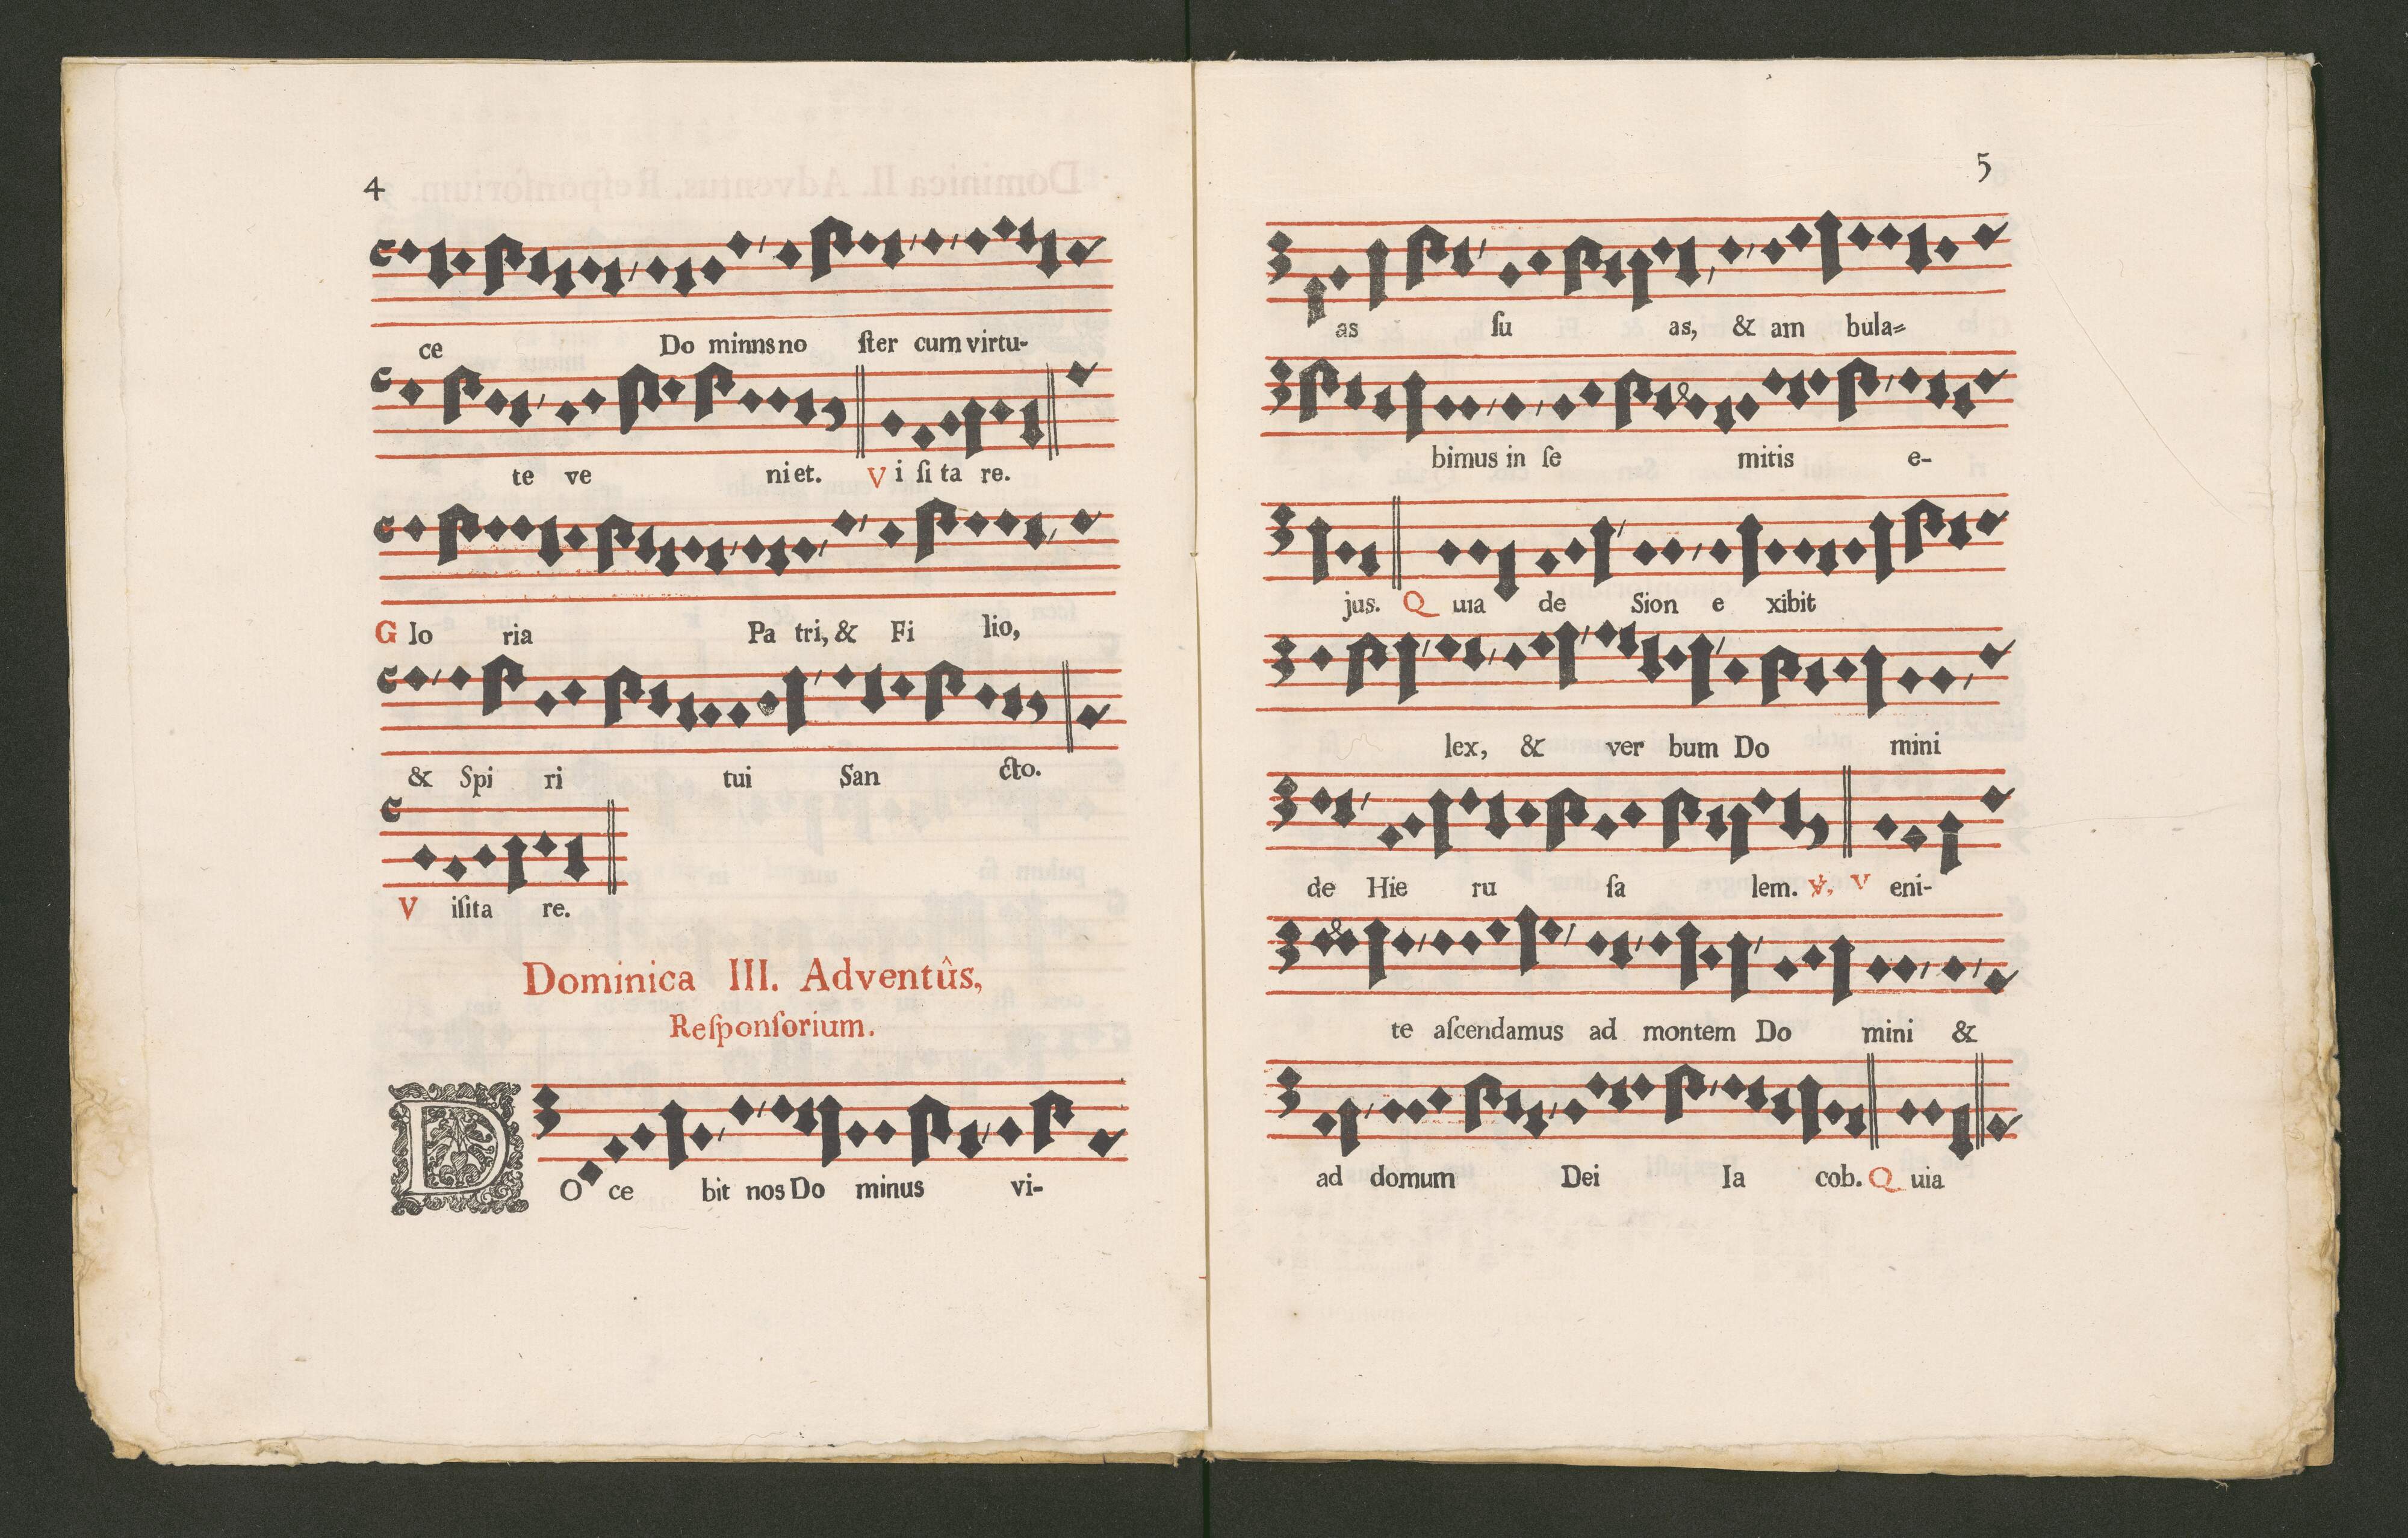 4
ce Do minns no ſter cum virtu-
te ve niet. V i ſi ta re.
G lo ria Pa tri, & Fi lio,
& Spi ri tui San cto.
V iſita re.
Dominica III. Adventûs,
Reſponſorium.
DO ce bit nos Do minus vi-
5
as ſu as, & am bula=
bimus in ſe mitis e-
jus. Q uia de Sion e xibit
lex, & ver bum Do mini
de Hie ru ſa lem. ℣, V eni-
te aſcendamus ad montem Do mini &
ad domum Dei Ia cob. Q uia